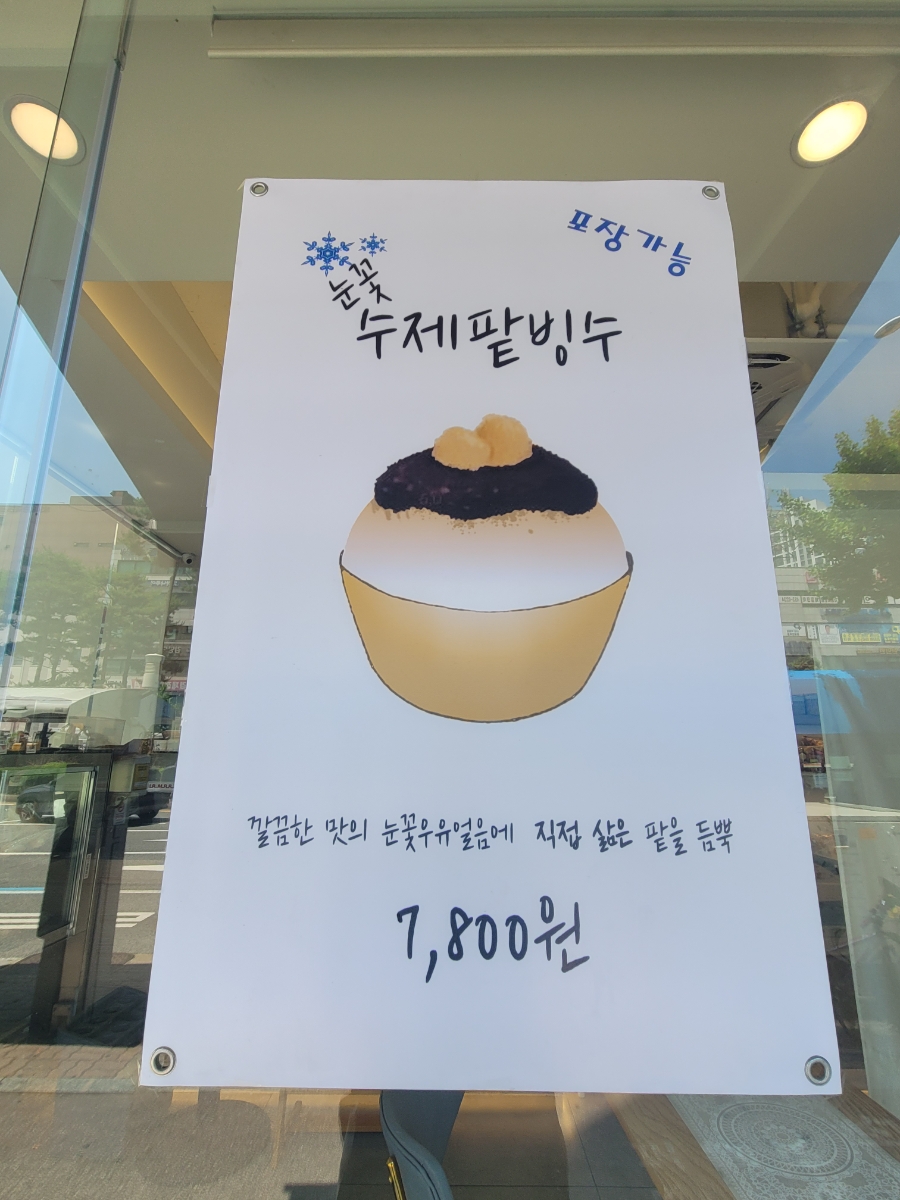 포장가능
눈꽃
수제팥빙수
깔끔한 맛의 눈꽃우유얼음에 직접 삶은 팥을 듬뿍
7,800원